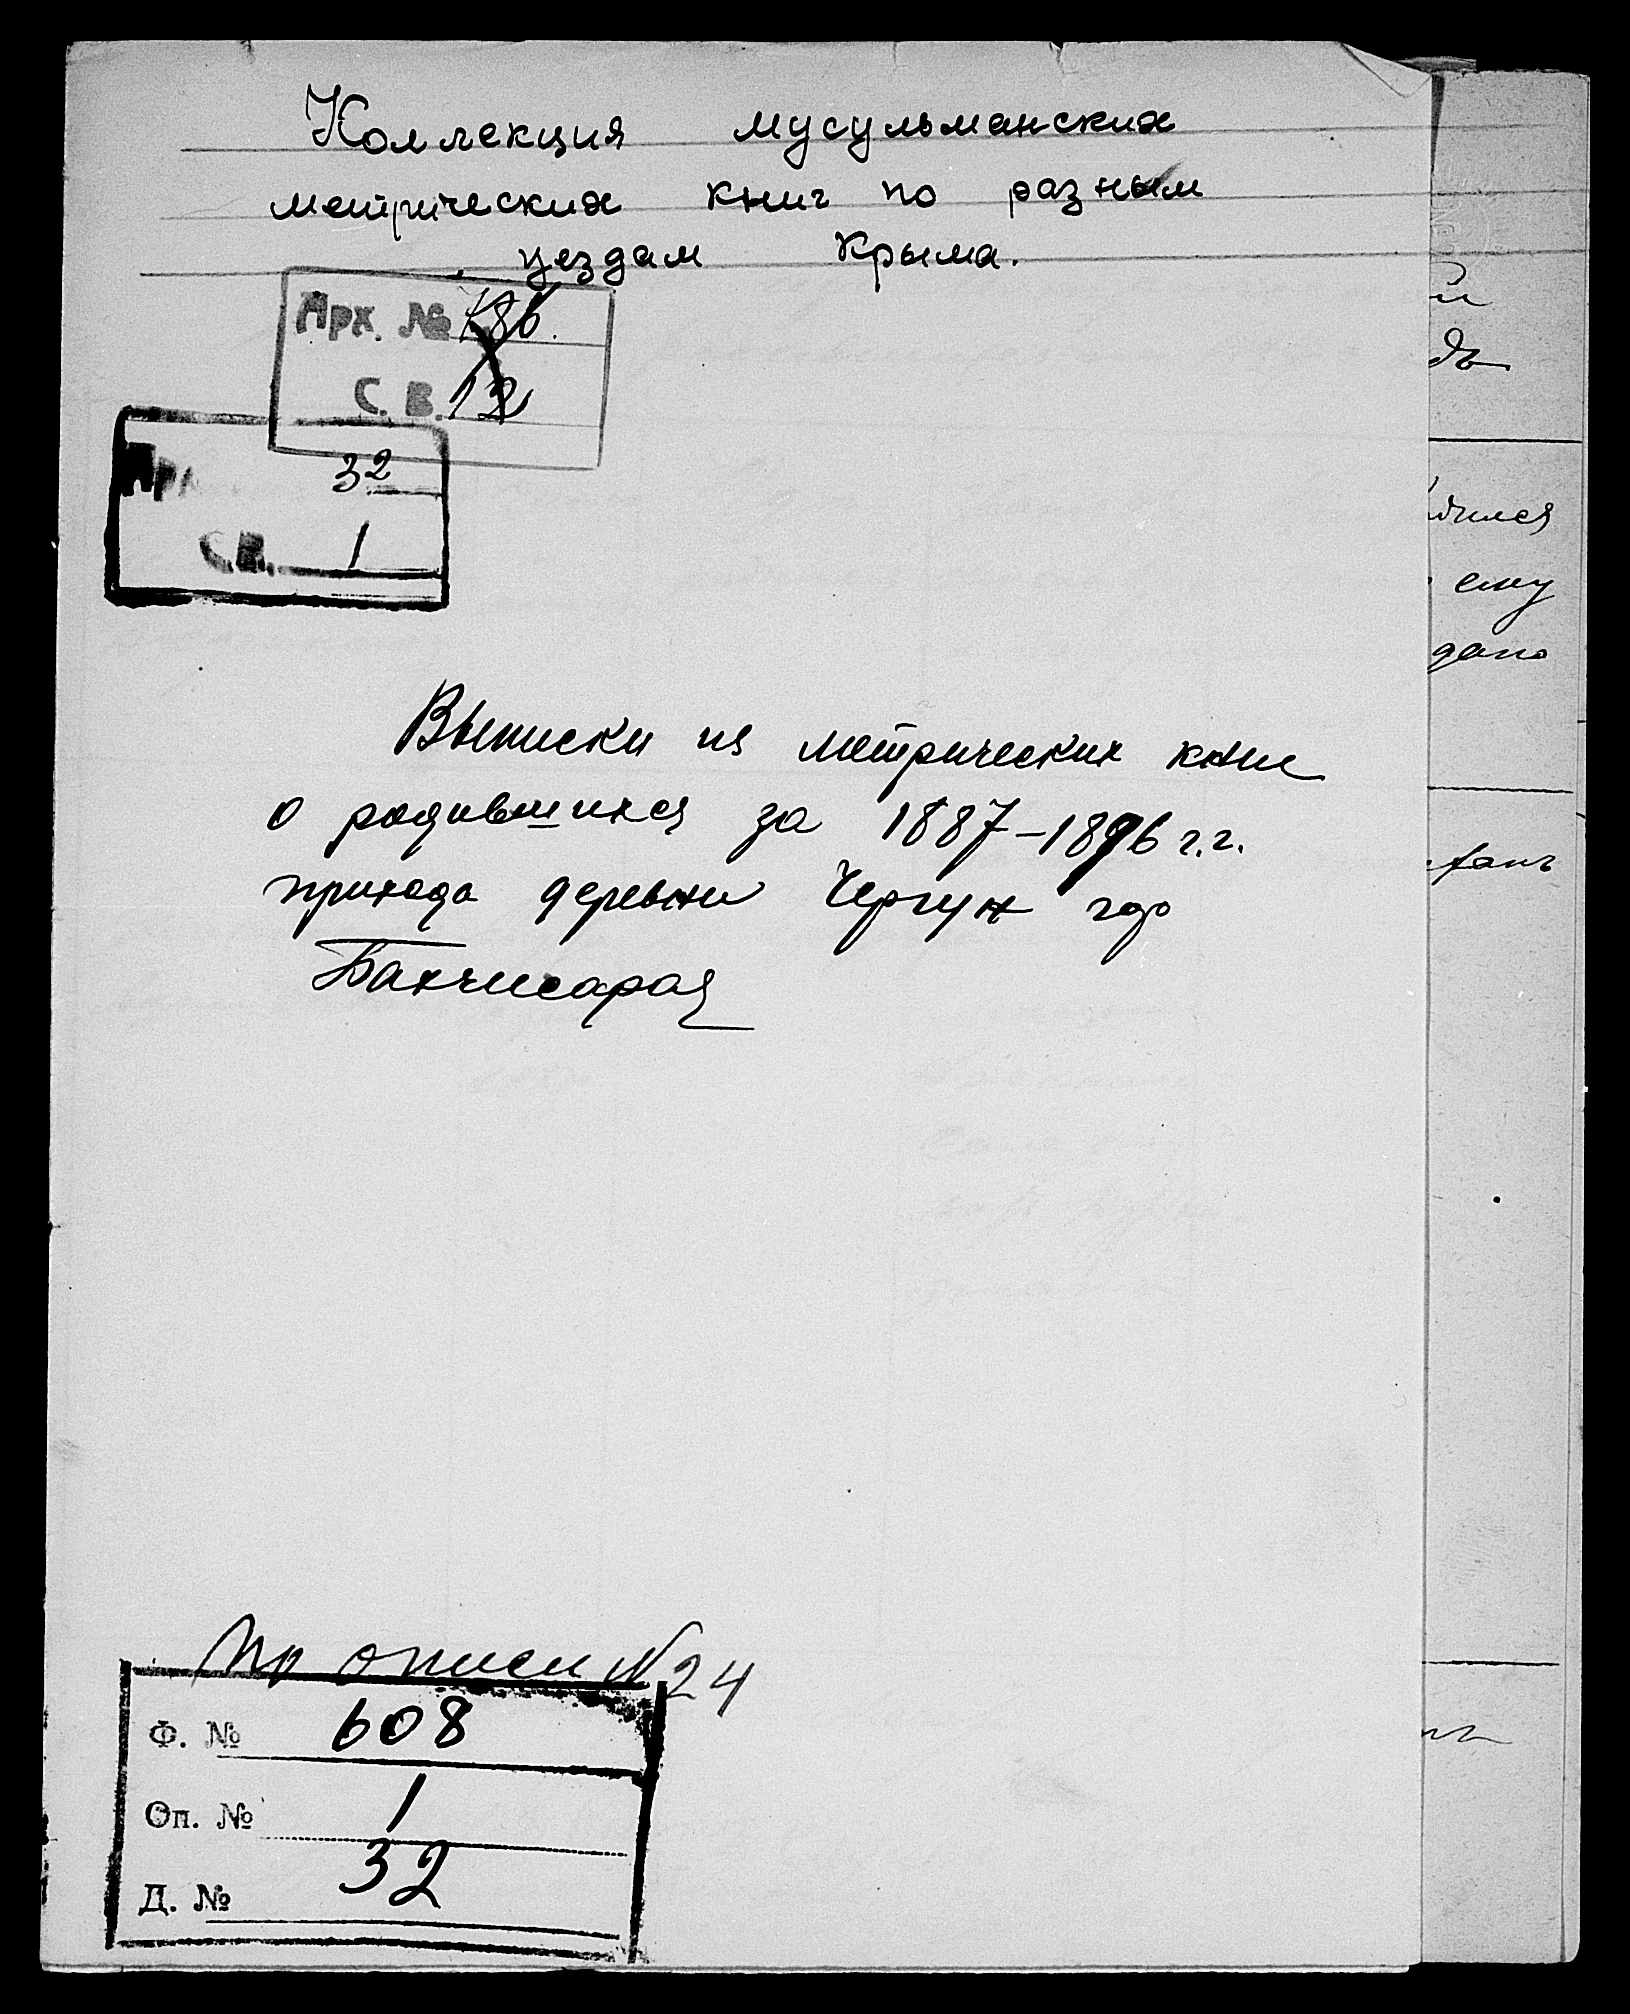 Коллекция мусульманских
метрических книг по разным
уездам Крыма.
Арх. № 186.
С. В. 12
Арх 32
С.В. 1
Выписки из метрических книг
о родившихся за 1887-1896 г.г.
прихода деревни Чергун гор
Бахчисарая
По описи N 24
Ф. № 608
Оп. № 1
Д. № 32
ему
дано